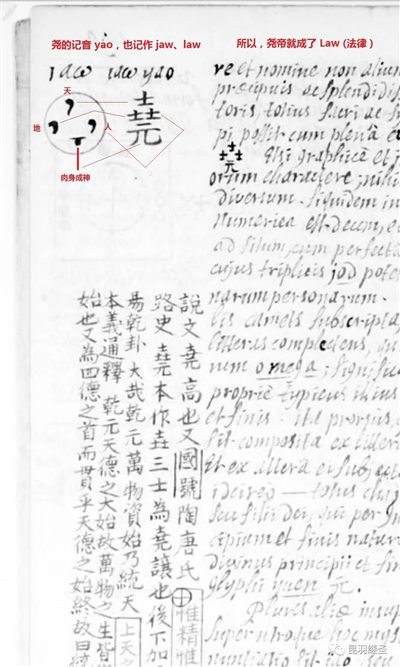 尧的记音 yao，也记作 jaw、law
所以，尧帝就成了 Law（法律）
ιαω ιαω yao
天
地
人
堯
肉身成神
re et nomine non alium
præcipuis ac splendidis
toris, totius sacri ac
pi possit cum plena
垚元
Etsi graphice et
ortim charactere; nihil
diversum. Siquidem in
Numerica est decem,
ad situm, cum perfecta
cujus triplicis jod poten
narum personarum.
lis camets subscripta
litteras complectens, qu
num omega; signific
proprie typicus illius
et finis. ita prorsus
sit composita ex litter
et ex altera
idcirco — totus
seu filii dei, qui per
cipium et finis natur
divinus principii et fin
glyphi yuen 元.
Plures aliæ insup
super utroque hoc mys
說文堯高也又國號陶唐氏
惟精惟
路史堯本作垚三士為堯讓也後下加
易乾卦大哉乾元萬物資始乃統天
上天之
本義通釋乾元天德之大始故萬物之生皆
始也又為四德之首而貫乎天德之始終故曰
昆羽繼圣